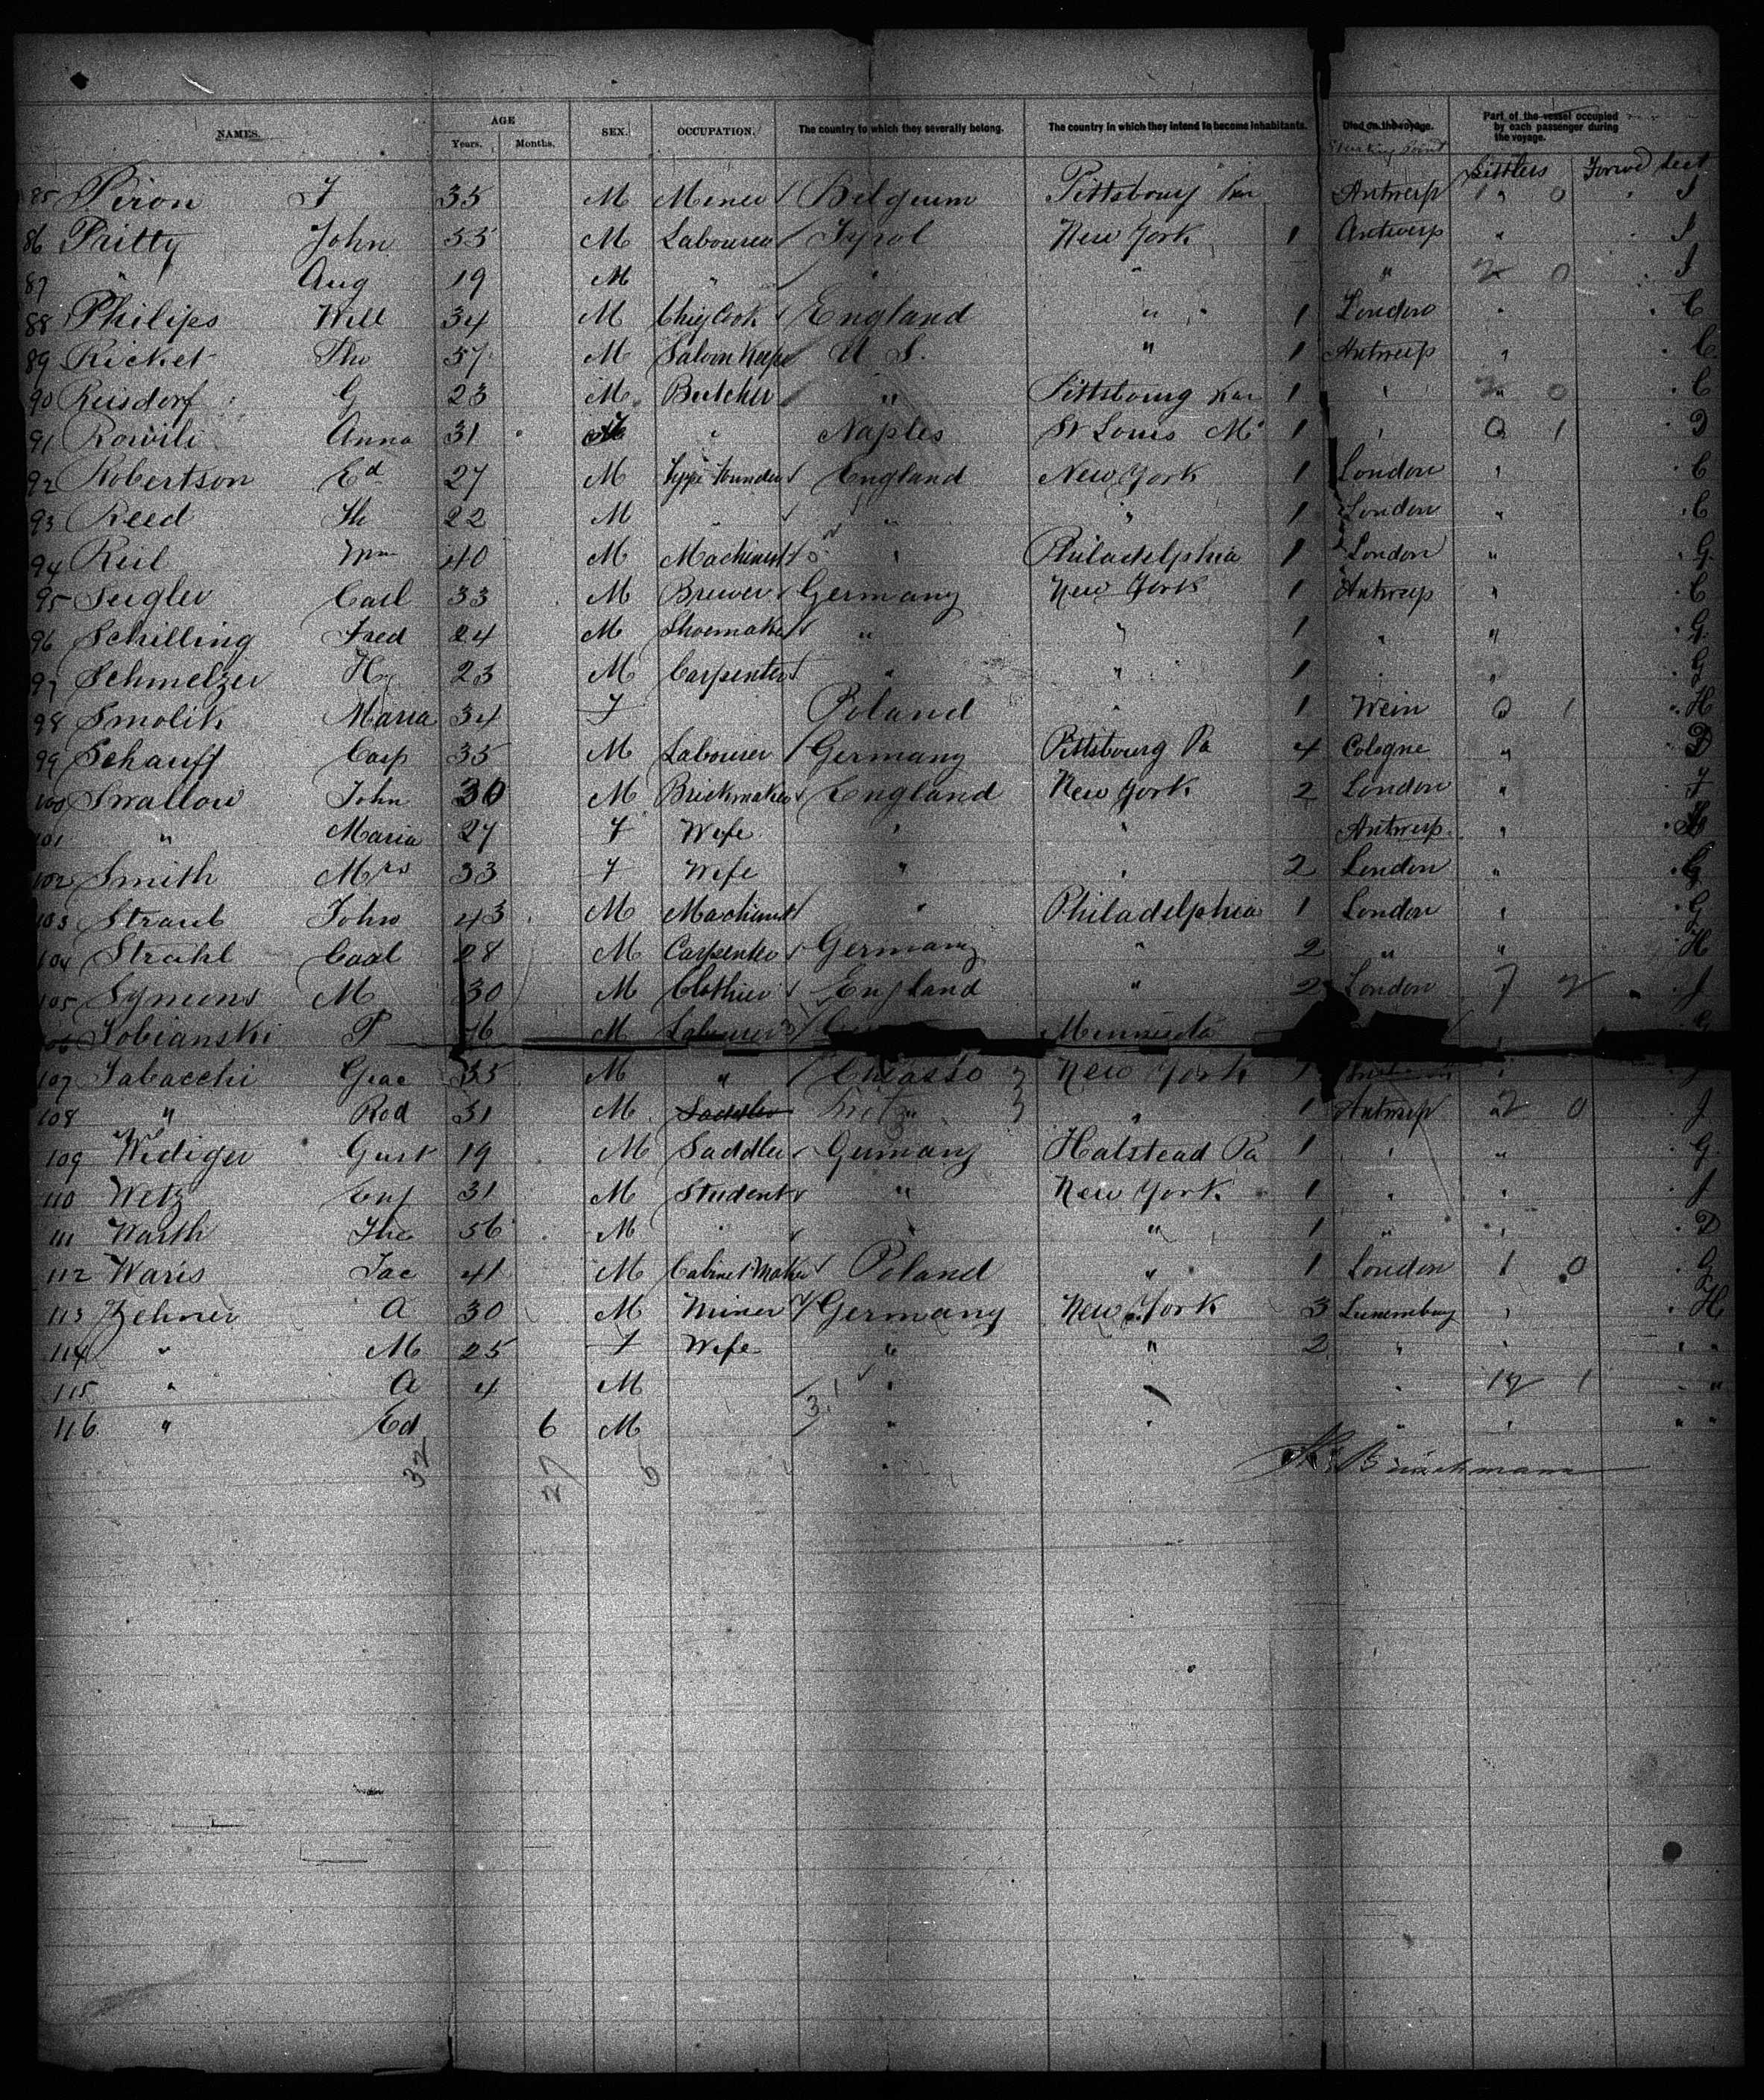 NAMES. AGE Years. Months. SEX. OCCUPATION. The country to which they severally belong. The country in which they intend to become inhabitants. Died on the voyage. Part of the vessel occupied by each passenger during the voyage.
Starting Point Settlers Forwd sect
85 Piron J 35 M Miner Belgium Pittsbourg Kan Antwerp 1 " 0 J
86 Pritty John 33 M Labourer Tyrol New York 1 Antwerp " J
87 " Aug 19 M " " " " 2 0 J
88 Philips Will 34 M Chief Cook England " " 1 London " C
89 Ricket Tho 37 M Saloon Keeper U S. " 1 Antwerp " C
90 Reisdorf G 23 M Butcher " Pittsbourg Kan 1 " 2 0 C
91 Rowili Anna 31 F " Naples St Louis Mo 1 " 0 1 D
92 Robertson Ed 27 M Type founder England New York 1 London " C
93 Reed Th 22 M " " " 1 London " C
94 Reil Wm 40 M Machinist " Philadelphia 1 London " G
95 Seigler Carl 33 M Brewer Germany New York 1 Antwerp " C
96 Schilling Fred 24 M Shoemaker " " 1 " " G
97 Schmelzer Hy 23 M Carpenter " " 1 " " G
98 Smolik Maria 34 F Poland " 1 Wein 0 1 H
99 Schauff Casp 35 M Labourer Germany Pittsbourg Pa 4 Cologne " D
100 Swallow John 30 M Brickmaker England New York 2 London " F
101 " Maria 27 F Wife " " Antwerp "
102 Smith Mrs 33 F Wife " " 2 London " G
103 Straub John 43 M Machinist " Philadelphia 1 London " G
104 Strahl Carl 28 M Carpenter Germany " 2 " " H
105 Symens M 30 M Clothier England " 2 London 7 2 J
106 Sobianski P 46 M Labourer Minnesota G
107 Tabacchi Giac 35 M " Chiasso New York 1 "
108 " Rod 31 M Saddler " " 1 Antwerp 2 0 J
109 Wediger Gust 19 M Saddler Germany Halstead Pa 1 " " G
110 Wetz 31 M Student " New York 1 " " J
111 Warth The 56 M " " " 1 " " D
112 Waris Jac 41 M Cabinet Maker Poland " 1 London 1 0 G
113 Zehner A 30 M Miner Germany New York 3 Luxemburg " H
114 " M 25 F Wife " " 2 " " "
115 " A 4 M " " " 17 1 "
116 " Ed 6 M " " " " " "
32 27 6